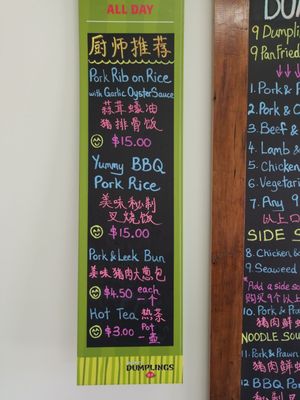 ALL DAY
厨师推荐
Pork Rib on Rice
with Garlic Oyster Sauce
蒜茸蠔油
猪排骨饭
$15.00
Yummy BBQ
Pork Rice
美味秘制
叉烧饭
$15.00
Pork & Leek Bun
美味猪肉大葱包
$4.50 each
一个
Hot Tea 热茶
$3.00 Pot
一壶
DUMPLINGS
DUM
9 Dumpli
9 Pan Fried
1. Pork &
2. Pork & C
3. Beef &
4. Lamb &
5. Chicken
6. Vegetari
7. Any 9
以上
SIDE S
8. Chicken &
9. Seaweed
*Add a side so
购买9个以上
10. Pork & Pra
猪肉鲜
NOODLE SOU
11. Pork & Prawn
猪肉鲜
12 BBQ Por
秘制叉